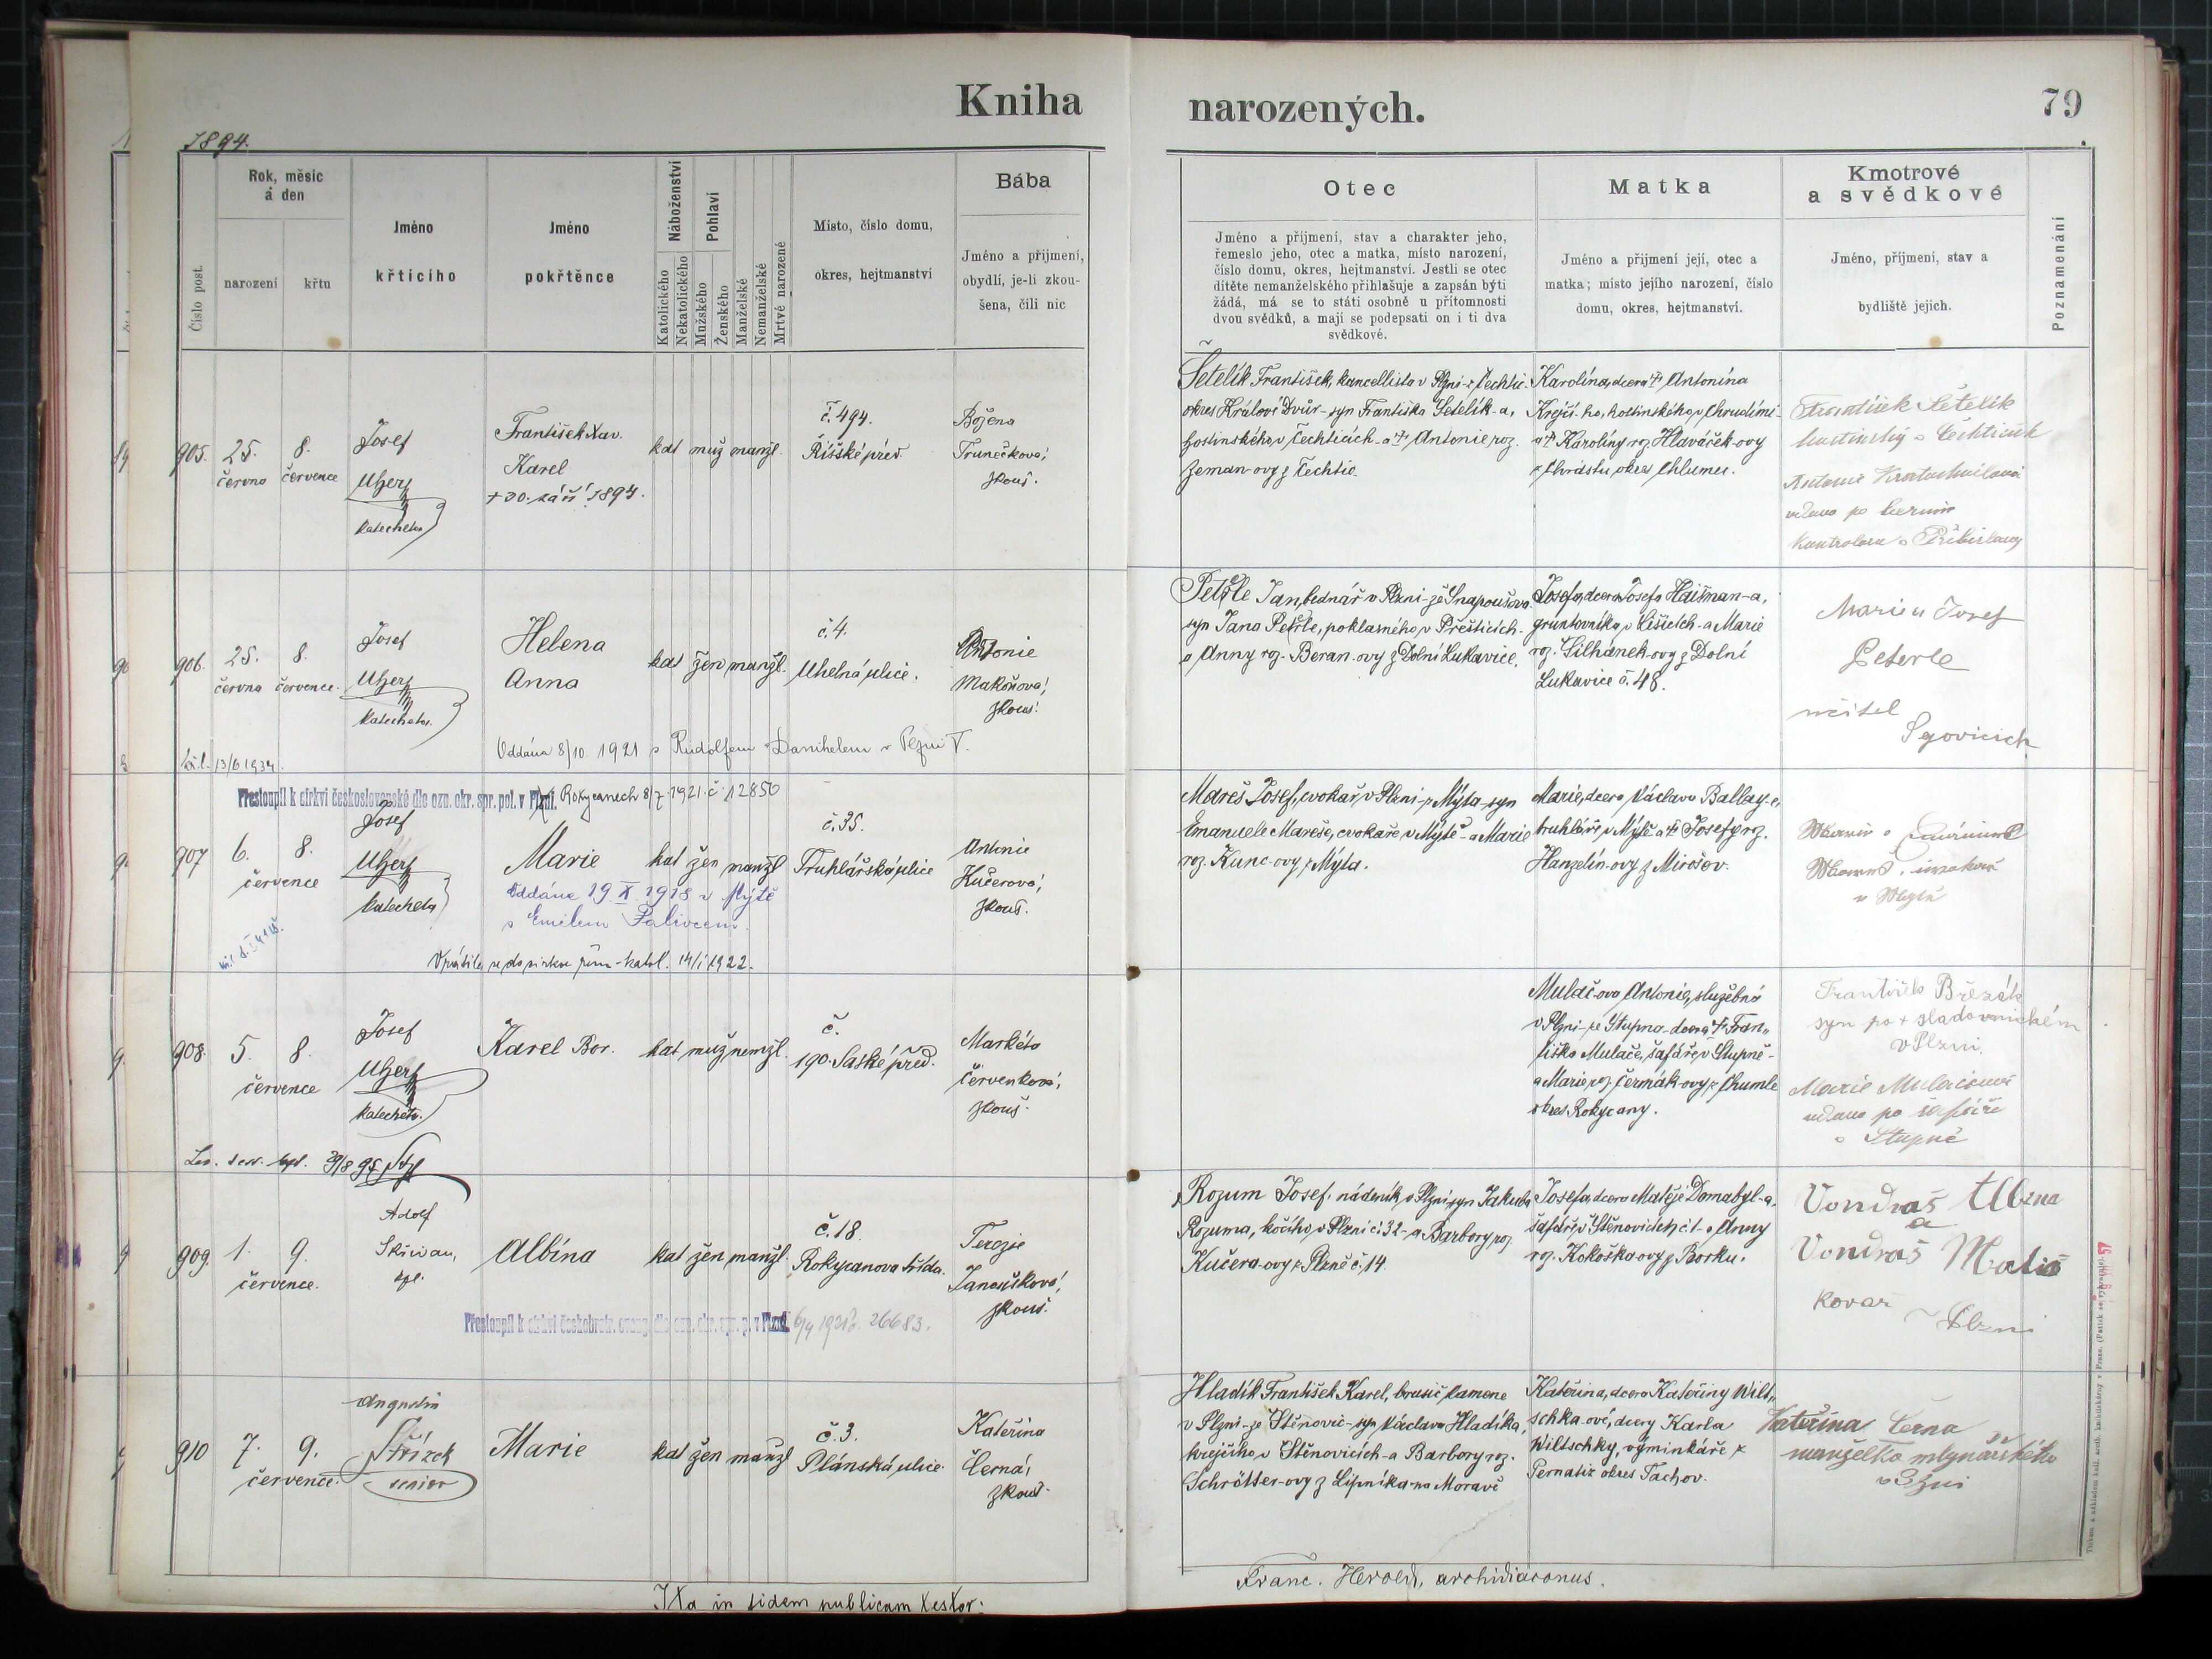 Kniha narozených.
79
1894.
Číslo post.
Rok, měsíc
a den
narození
křtu
Jméno
křtícího
Jméno
pokřtěnce
Náboženství
Katolického
Nekatolického
Pohlaví
Mužského
Ženského
Manželské
Nemanželské
Mrtvě narozené
Místo, číslo domu,
okres, hejtmanství
Bába
Jméno a přijmení,
obydlí, je-li zkou-
šena, čili nic
Otec
Jméno a přijmení, stav a charakter jeho,
řemeslo jeho, otec a matka, místo narození,
číslo domu, okres, hejtmanství. Jestli se otec
dítěte nemanželského přihlašuje a zapsán býti
žádá, má se to státi osobně u přítomnosti
dvou svědků, a mají se podepsati on i ti dva
svědkové.
Matka
Jméno a přijmení její, otec a
matka; místo jejího narození, číslo
domu, okres, hejtmanství.
Kmotrové
a svědkové
Jméno, přijmení, stav a
bydliště jejich.
Poznamenání
905.
25.
června
8.
července
Josef
Uherz
katecheta
František Xav.
Karel
+ 30. září 1894.
kat muž manžl.
č. 494.
Říšské před.
Božena
Trunečková,
zkouš.
Šetelík František, kancellista v Plzni z Čechtic
okres Králové Dvůr - syn Františka Šetelík-a,
hostinského v Čechticích - a + Antonie roz.
Zeman-ovy z Čechtic.
Karolina, dcera + Antonína
Krejčí-ho, hostinského v Chrudimi
a + Karolíny roz. Hlaváček-ovy
z Chvrdstu, okres Chlumec.
František Šetelík
hostinský v Čechticích
Antonie Kratochvílová
vdova po
kontrolora v Přibislavi
906.
25.
června
8.
července.
Josef
Uherz
katecheta.
Helena
Anna
kat žen manžl.
č. 4.
Uhelná ulice.
Antonie
Makoňová,
zkouš.
Oddána 8/10. 1921 s Rudolfem Danihelem v Plzni V.
13/6 1934.
Peterle Jan, bednář v Plzni - ze Snapoušova
syn Jana Peterle, poklasného v Přešticích -
a Anny roz. Beran-ovy z Dolní Lukavice.
Josefa, dcera Josefa Haišman-a,
gruntovníka v Lišicích - a Marie
roz. Silhánek-ovy z Dolní
Lukavice č. 48.
Marie a Josef
Peterle
učitel
907
Přestoupil k církvi československé dle ozn. okr. spr. pol. v Plzni. Rokycanech 8/7 1921 č. 12850
6.
července
8.
Josef
Uherz
katecheta
Marie
kat žen manžl
č. 35.
Truhlářská ulice
Antonie
Kučerová,
zkouš.
Oddána 19. X. 1918 v Mýtě
s Emilem Palivcem.
Vrátila se do církve řím-katol. 14/1 1922.
Mareš Josef, cvokař v Plzni - z Mýta - syn
Emanuele Mareše, cvokaře v Mýtě - a Marie
roz. Kunc-ovy z Mýta.
Marie, dcera Václava Ballay-e,
truhláře v Mýtě a + Josefy roz.
Hanzelín-ovy z Mirošov.
v Mýtě
908.
5.
července
8.
Josef
Uherz
katecheta.
Karel Bor.
kat muž nemžl.
č.
190. Saské před.
Markéta
Červenková,
zkouš.
Mulač-ova Antonie, služebná
v Plzni - ze Stupna - dcera + Fran„
tiška Mulače, šafáře v Stupně -
a Marie roz. Čermák-ovy z Chumle
okres Rokycany.
František Březák
syn po + sladovnickém
v Plzni.
Marie Mulačová
vdova po šafáři
v Stupně
909.
1.
července.
9.
Adolf
Skřivan,
kpl.
Albína
kat žen manžl.
č. 18.
Rokycanova třída.
Terezie
Janoušková,
zkouš.
Přestoupil k církvi českobratr. evang. dle ozn. okr. spr. p. v Plzni. 6/4 1921 č. 26683.
Rozum Josef, nádeník v Plzni, syn Jakuba
Rozuma, kočího v Plzni č. 32 - a Barbory roz.
Kučera-ovy z Plzně č. 14.
Josefa, dcera Matěje Domabyl-a,
šafáře v Štěnovicích č. 1 - a Anny
roz. Kokoška-ovy z Borku.
Vondraš Albína
a
Vondraš Matiáš
kovář
v Plzni
910
7.
července.
9.
Augustin
Střízek
senior
Marie
kat žen manžl
č. 3.
Plánská ulice.
Kateřina
Černá,
zkouš.
Hladík František Karel, brusič kamene
v Plzni - ze Štěnovic - syn Václava Hladíka,
krejčího v Štěnovicích - a Barbory roz.
Schrötter-ovy z Lipníka na Moravě
Kateřina, dcera Kateřiny Wilt„
schka-ové, dcery Karla
Wiltschky, výminkáře z
Pernatiz okres Tachov.
Kateřina Černá
manželka mlynářského
v Plzni
Ita in fidem publicam testor:
Franc. Herold, archidiaconus.